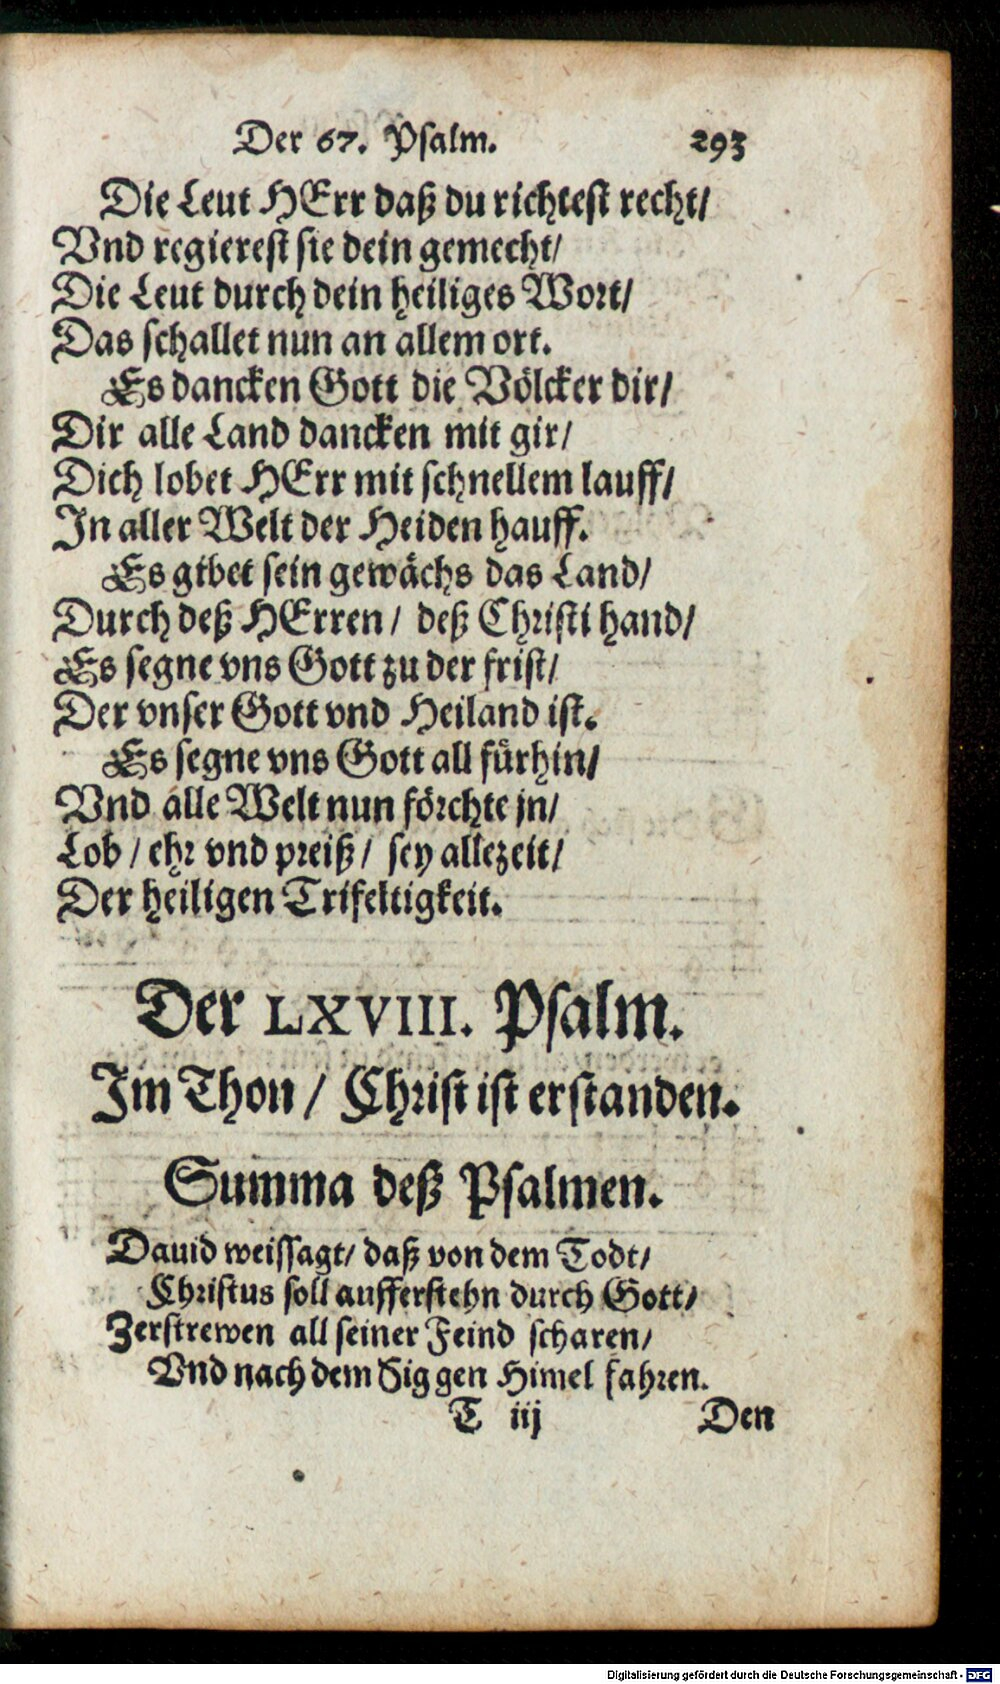 Der 67. Psalm. 293
Die Leut HErr daß du richtest recht/
Vnd regierest sie dein gemecht/
Die Leut durch dein heiliges Wort/
Das schallet nun an allem ort.
Es dancken Gott die Völcker dir/
Dir alle Land dancken mit gir/
Dich lobet HErr mit schnellem lauff/
In aller Welt der Heiden hauff.
Es gibet sein gewächs das Land/
Durch deß HErren/ deß Christi hand/
Es segne vns Gott zu der frist/
Der vnser Gott vnd Heiland ist.
Es segne vns Gott all fürhin/
Vnd alle Welt nun förchte jn/
Lob/ ehr vnd preiß/ sey allezeit/
Der heiligen Trifeltigkeit.
Der LXVIII. Psalm.
Im Thon/ Christ ist erstanden.
Summa deß Psalmen.
Dauid weissagt/ daß von dem Todt/
Christus soll aufferstehn durch Gott/
Zerstrewen all seiner Feind scharen/
Vnd nach dem Sig gen Himel fahren.
T iij Den
Digitalisierung gefördert durch die Deutsche Forschungsgemeinschaft - DFG